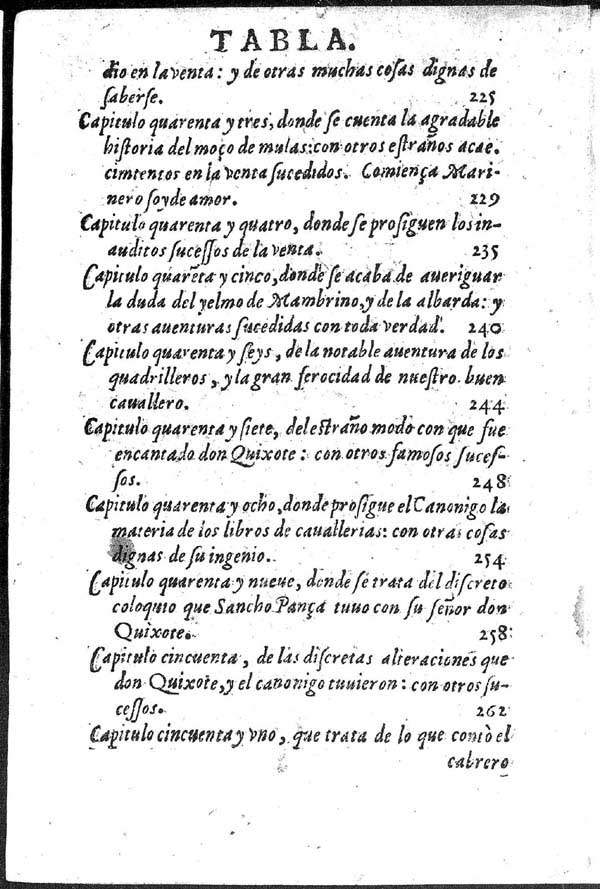 TABLA.
dio en la venta: y de otras muchas cosas dignas de
saberse. 225
Capitulo quarenta y tres, donde se cuenta la agradable
historia del moço de mulas: con otros estraños acae.
cimientos en la venta sucedidos. Comiença Mari-
nero soy de amor. 229
Capitulo quarenta y quatro, donde se prosiguen los in-
auditos sucessos de la venta. 235
Capitulo quarẽta y cinco, donde se acaba de aueriguar
la duda del yelmo de Mambrino, y de la albarda: y
otras auenturas sucedidas con toda verdad. 240
Capitulo quarenta y seys, de la notable auentura de los
quadrilleros, y la gran ferocidad de nuestro buen
cauallero. 244
Capitulo quarenta y siete, del estraño modo con que fue
encantado don Quixote: con otros famosos suces-
sos. 248
Capitulo quarenta y ocho, donde prosigue el Canonigo la
materia de los libros de cauallerias: con otras cosas
dignas de su ingenio. 254
Capitulo quarenta y nueue, donde se trata del discreto
coloquio que Sancho Pança tuuo con su señor don
Quixote. 258
Capitulo cincuenta, de las discretas alteraciones que
don Quixote, y el canonigo tuuieron: con otros su-
cessos. 262
Capitulo cincuenta y vno, que trata de lo que contò el
cabrero